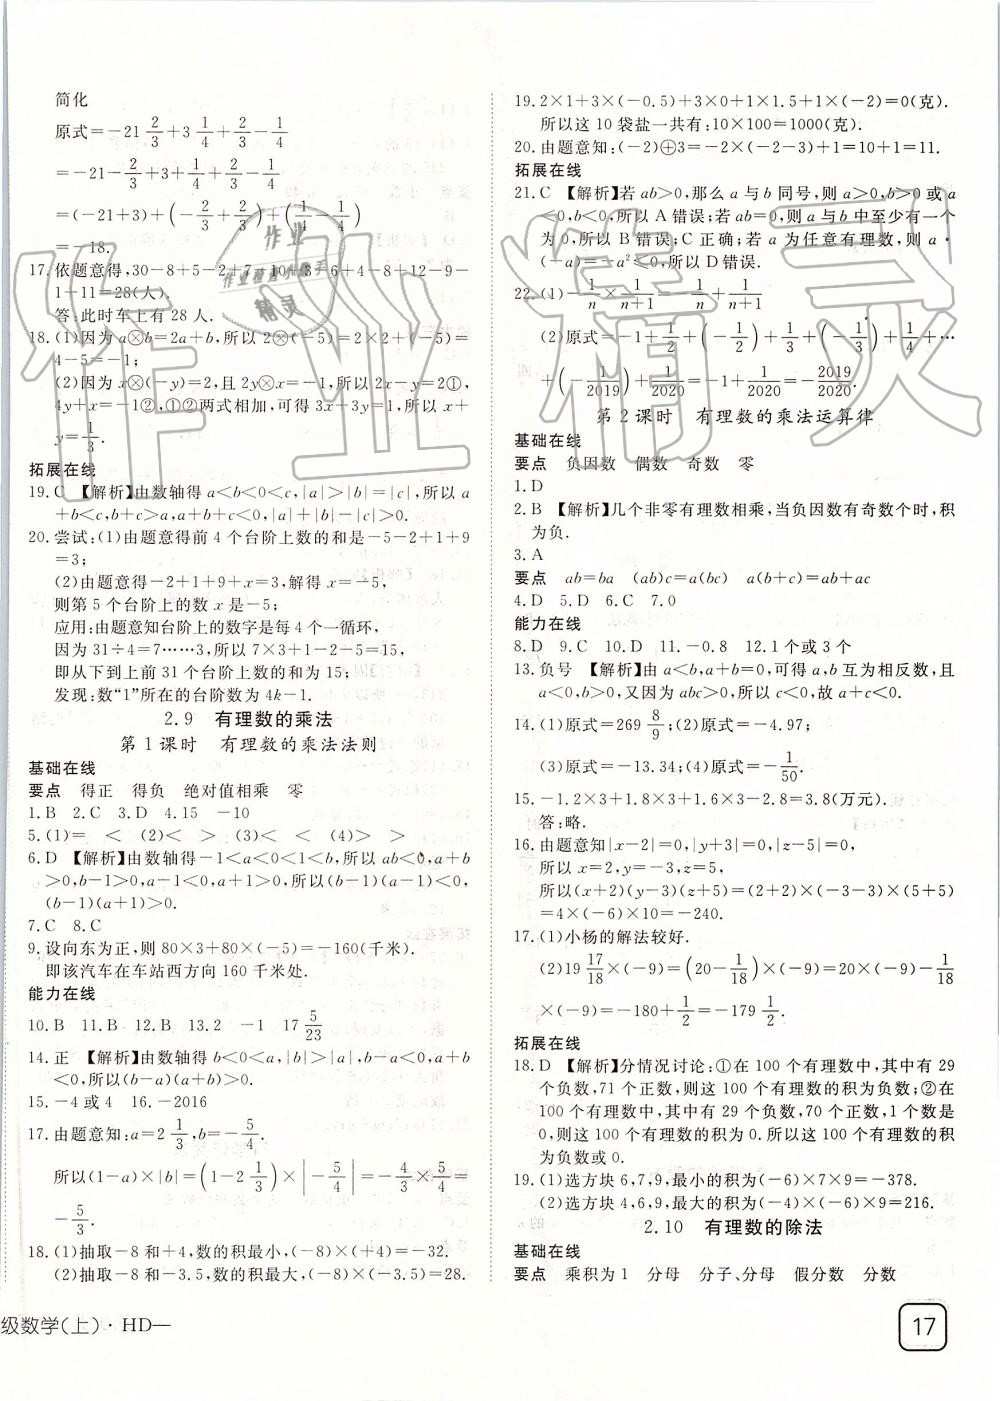 简化
原式=-21 2/3+3 1/4+2/3-1/4
=-21-2/3+3+1/4+2/3-1/4
=(-21+3)+(-2/3+2/3)+(1/4-1/4)
=-18.
17.依题意得,30-8+5-2+7-10+3-6+4-8+12-9-
1+11=28(人).
答:此时车上有 28 人.
18.(1)因为 a⊗b=2a+b,所以 2⊗(-5)=2×2+(-5)=
4-5=-1;
(2)因为 x⊗(-y)=2,且 2y⊗x=-1,所以 2x-y=2①,
4y+x=-1②,①②两式相加,可得 3x+3y=1,所以 x+
y=1/3.
拓展在线
19.C 【解析】由数轴得 a<b<0<c,|a|>|b|=|c|,所以 a
+b<c,b+c>a,a+b+c<0,|a|+|b|-|c|>0.
20.尝试:(1)由题意得前 4 个台阶上数的和是-5-2+1+9
=3;
(2)由题意得-2+1+9+x=3,解得 x=-5,
则第 5 个台阶上的数 x 是-5;
应用:由题意知台阶上的数字是每 4 个一循环,
因为 31÷4=7……3,所以 7×3+1-2-5=15,
即从下到上前 31 个台阶上数的和为 15;
发现:数“1”所在的台阶数为 4k-1.
2.9 有理数的乘法
第 1 课时 有理数的乘法法则
基础在线
要点 得正 得负 绝对值相乘 零
1.B 2.C 3.D 4.15 -10
5.(1)= < (2)< > (3)< < (4)> >
6.D 【解析】由数轴得-1<a<0<1<b,所以 ab<0,a+b
>0,b-1>0,a-1<0,a+1>0,所以(b-1)(a-1)<0,
(b-1)(a+1)>0.
7.C 8.C
9.设向东为正,则 80×3+80×(-5)=-160(千米).
即该汽车在车站西方向 160 千米处.
能力在线
10.B 11.B 12.B 13.2 -1 17 5/23
14.正 【解析】由数轴得 b<0<a,|b|>|a|,所以 a-b>0,a+b
<0,所以-(a-b)(a+b)>0.
15.-4 或 4 16.-2016
17.由题意知:a=2 1/3,b=-5/4.
所以(1-a)×|b|=(1-2 1/3)×|-5/4|=-4/3×5/4=
-5/3.
18.(1)抽取-8 和+4,数的积最小,(-8)×(+4)=-32.
(2)抽取-8 和-3.5,数的积最大,(-8)×(-3.5)=28.
级数学(上)·HD—
19.2×1+3×(-0.5)+3×0+1×1.5+1×(-2)=0(克).
所以这 10 袋盐一共有:10×100=1000(克).
20.由题意知:(-2)⊕3=-2×(-2-3)+1=10+1=11.
拓展在线
21.C 【解析】若 ab>0,那么 a 与 b 同号,则 a>0,b>0 或 a
<0,b<0,所以 A 错误;若 ab=0,则 a 与 b 中至少有一个
为 0,所以 B 错误;C 正确;若 a 为任意有理数,则 a·
(-a)=-a²≤0,所以 D 错误.
22.(1)-1/n×1/(n+1)=-1/n+1/(n+1)
(2)原式=-1+1/2+(-1/2)+1/3+(-1/3)+1/4+…
+(-1/2019)+1/2020=-1+1/2020=-2019/2020
第 2 课时 有理数的乘法运算律
基础在线
要点 负因数 偶数 奇数 零
1.D
2.B 【解析】几个非零有理数相乘,当负因数有奇数个时,积
为负.
3.A
要点 ab=ba (ab)c=a(bc) a(b+c)=ab+ac
4.D 5.D 6.C 7.0
能力在线
8.D 9.C 10.D 11.-0.8 12.1 个或 3 个
13.负号 【解析】由 a<b,a+b=0,可得 a,b 互为相反数,且
a<0,b>0,又因为 abc>0,所以 c<0,故 a+c<0.
14.(1)原式=269 8/9;(2)原式=-4.97;
(3)原式=-13.34;(4)原式=-1/50.
15.-1.2×3+1.8×3+1.6×3-2.8=3.8(万元).
答:略.
16.由题意知|x-2|=0,|y+3|=0,|z-5|=0,
所以 x=2,y=-3,z=5,
所以(x+2)(y-3)(z+5)=(2+2)×(-3-3)×(5+5)
=4×(-6)×10=-240.
17.(1)小杨的解法较好.
(2)19 17/18×(-9)=(20-1/18)×(-9)=20×(-9)-1/18
×(-9)=-180+1/2=-179 1/2
拓展在线
18.D 【解析】分情况讨论:①在 100 个有理数中,其中有 29
个负数,71 个正数,则这 100 个有理数的积为负数;②在
100 个有理数中,其中有 29 个负数,70 个正数,1 个数是
0,则这 100 个有理数的积为 0.所以这 100 个有理数的积
为负数或 0.
19.(1)选方块 6,7,9,最小的积为(-6)×7×9=-378.
(2)选方块 4,6,9,最大的积为(-4)×(-6)×9=216.
2.10 有理数的除法
基础在线
要点 乘积为 1 分母 分子、分母 假分数 分数
17
作业精灵